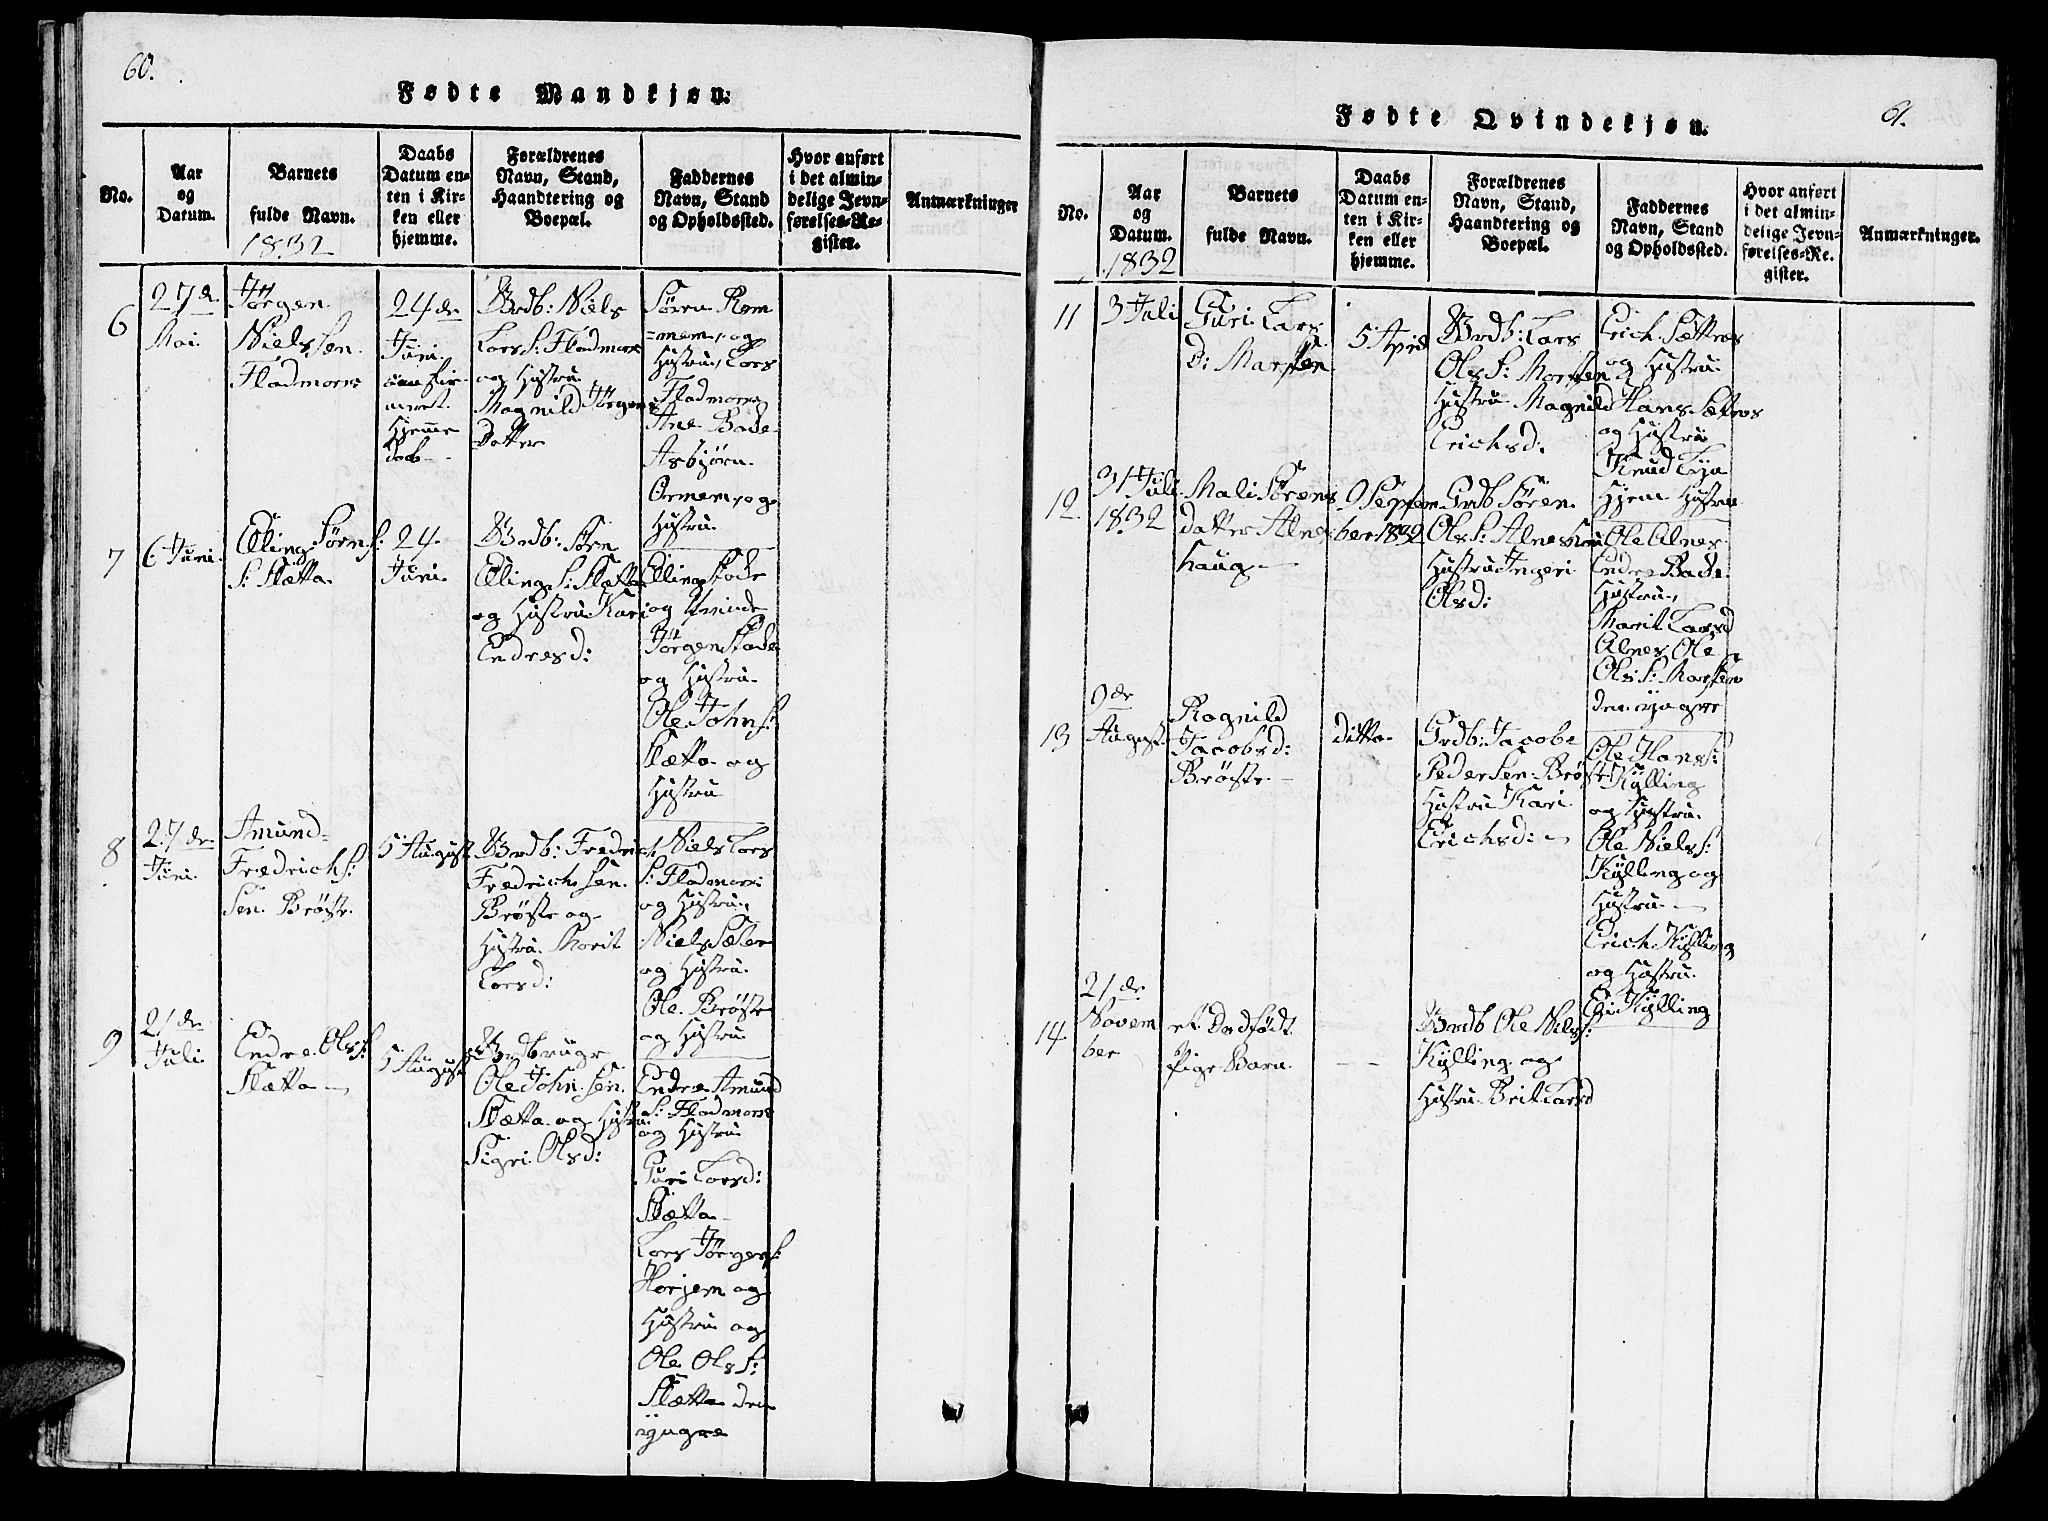 60.
Fødte Mandkjøn.
No.
Aar
og
Datum.
Barnets
fulde Navn.
1832
Daabs
Datum en-
ten i Kir-
ken eller
hjemme.
Forældrenes
Navn, Stand,
Haandtering og
Boepæl.
Faddernes
Navn, Stand
og Opholdssted.
Hvor anført
i det almin-
delige Jevn-
førelses-Re-
gister.
Anmærkninger
6
27de
Mai.
Jörgen
Nielssen
Fladmore
24de
Juni
Hjemme
daab
Brdb: Niels
Lars S: Fladmore
og Hustru
Magnild Jörgens
Datter
Sören Rem
=mem, og
Hustru, Lars
Fladmore
Ane Bade
Asbjörn
Ormem, og
Hustru.
7
6 Juni.
Elling Sörn
S: Slætta
24.
Juni.
Brdb: Sörn
Elling S: Slætta
og Hustru Kari
Endresd:
Elling Stode
og Qvinde
Jörgen Stode
og Hustru
Ole John S:
Slætta og
Hustru
8
27de
Juni
Amund
Fredrichs:
Sen Bröste
5 August
Brdb: Fredrich
Fredrichsen
Bröste og
Hustru Marit
Larsd:
Niels Lars
S: Fladmore
og Hustru
Niels Sæter
og Hustru.
Ole Bröste
og Hustru
9
21de
Juli
Endre Ols S:
Slætta
5 August
Brdbruger
Ole Johnsen
Slætta og Hustru
Sigri Olsd:
Endre Amund
S: Fladmore
og Hustru
Guri Larsd:
Slætta
Lars Jörgens S:
Horjem og
Hustru og
Ole Ols S:
Slætta den
yngre
61.
Fødte Qvindekjøn.
No.
Aar
og
Datum.
1832
Barnets
fulde Navn.
Daabs
Datum en-
ten i Kir-
ken eller
hjemme.
Forældrenes
Navn, Stand,
Haandtering og
Boepæl.
Faddernes
Navn, Stand
og Opholdssted.
Hvor anført
i det almin-
delige Jevn-
førelses-Re-
gister.
Anmærkninger.
11
3 Juli
Guri Lars
D: Marsten
5 April
Brdb: Lars
Ols S: Marsten
Hustru Magnild
Erichsd:
Erich Sætters
og Hustru
Hans Sætters
og Hustru
Knud Lyn
Hjem Hustru
12
31 Juli
1832
Mali Sörens
datter Alnes
haug
9 Septem
ber 1832
Grdb Sören
Ols S: Alneshaug
Hustru Ingeri
Olsd:
Ole Alnes
Endre Bade
Hustru,
Marit Larsd
Alnes, Ole
Ols S: Marsten
den yngre
13
9de
August
Ragnild
Jacobsd:
Bröste
ditto
Grdb: Jacob
Pedersen Bröste
Hustru Kari
Erichsd:
Ole Hans S:
Kylling
og Hustru.
Ole Niels S:
Kylling og
Hustru
Erich Kylling
og Hustru.
Eli Kylling
14
21de
Novem
ber
et Dødfødt
Pige Barn
Brdb Ole Niels S:
Kylling og
Hustru Brit Larsd